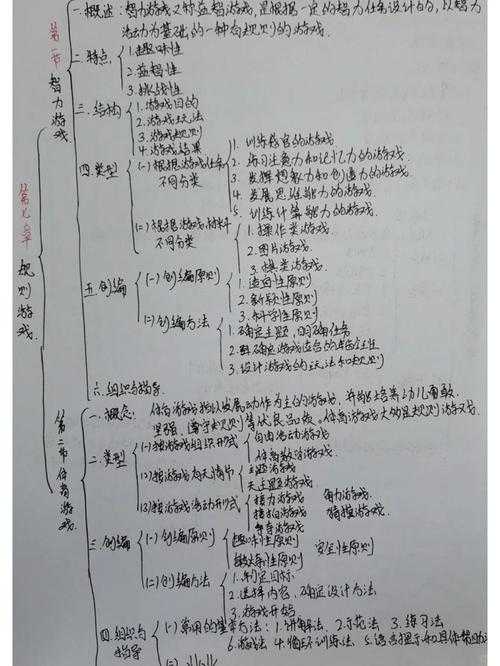 第九章 规则游戏
第一节 智力游戏
一.概述：智力游戏又称益智游戏，是根据一定的智力任务设计的，以智力
活动为基础的一种有规则的游戏.
二.特点
1.趣味性
2.益智性
3.挑战性
三.结构
1.游戏目的
2.游戏玩法
3.游戏规则
4.游戏结果
四.类型
(一)根据游戏任务不同分类
1.训练感官的游戏
2.练习注意力和记忆力的游戏.
3.发挥想象力和创造力的游戏.
4.发展思维能力的游戏.
5.训练计算能力的游戏.
(二)根据游戏材料不同分类
1.操作类游戏
2.图片游戏.
3.棋类游戏.
五.创编
(一)创编原则
1.适宜性原则
2.新颖性原则
3.科学性原则
(二)创编方法
1.确定主题,明确任务
2.确定游戏适合的
3.设计游戏的玩法和规则
六.组织与指导.
第二节 体育游戏.
一.概念： 体育游戏指以发展动作为主的游戏，并能培养幼儿勇敢
坚强、遵守规则等优良品质。体育游戏大都是规则游戏.
二.类型
(1)按游戏组织形式
自由活动游戏
体育教学游戏
(2)按游戏有无情节
主题游戏
无主题游戏
(3)按游戏活动形式
接力游戏 角力游戏
追拍游戏
争夺游戏
三.创编
(一)创编原则
趣味性原则
锻炼性原则 安全性原则
(二)创编方法
1.制定目标
2.选择内容，确定设计方法
3.游戏开始
四.组织与指导
(一)常用的基本方法：1.讲解法、2.示范法 3.练习法
6.游戏法 4.循环训练法、5.语言提示和具体帮助
(二)